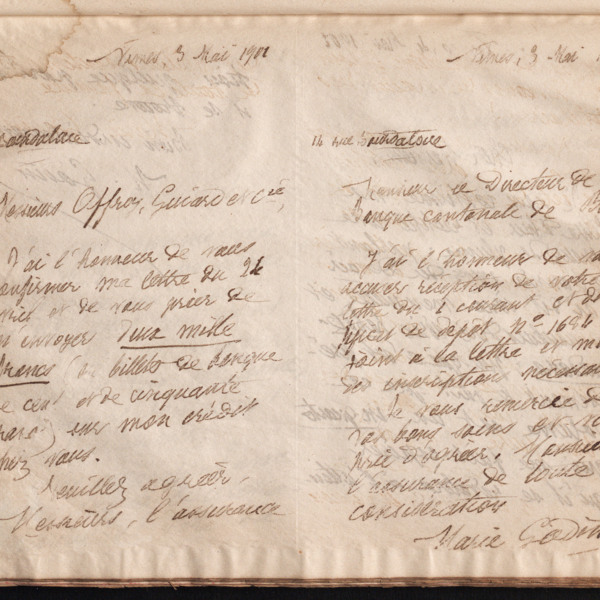 Nimes, 3 Mai 1901
Bourdaloue
Messieurs Offroy, Guiard et Cie,
J'ai l'honneur de vous
confirmer ma lettre du 24
et de vous prier de
m'envoyer deux mille
francs en billets de banque
de cent et de cinquante
francs sur mon crédit
chez vous.
Veuillez agréer,
Messieurs, l'assurance
Nimes, 3 Mai
14 rue Bourdaloue
Monsieur le Directeur de
Banque cantonale de
J'ai l'honneur de
accuser réception de votre
lettre du 1 courant et du
de dépôt No 1684
joint à la lettre et
des inscriptions
Je vous remercie de
vos bons soins et
prie d'agréer, Monsieur
l'assurance de toute
considération
Marie